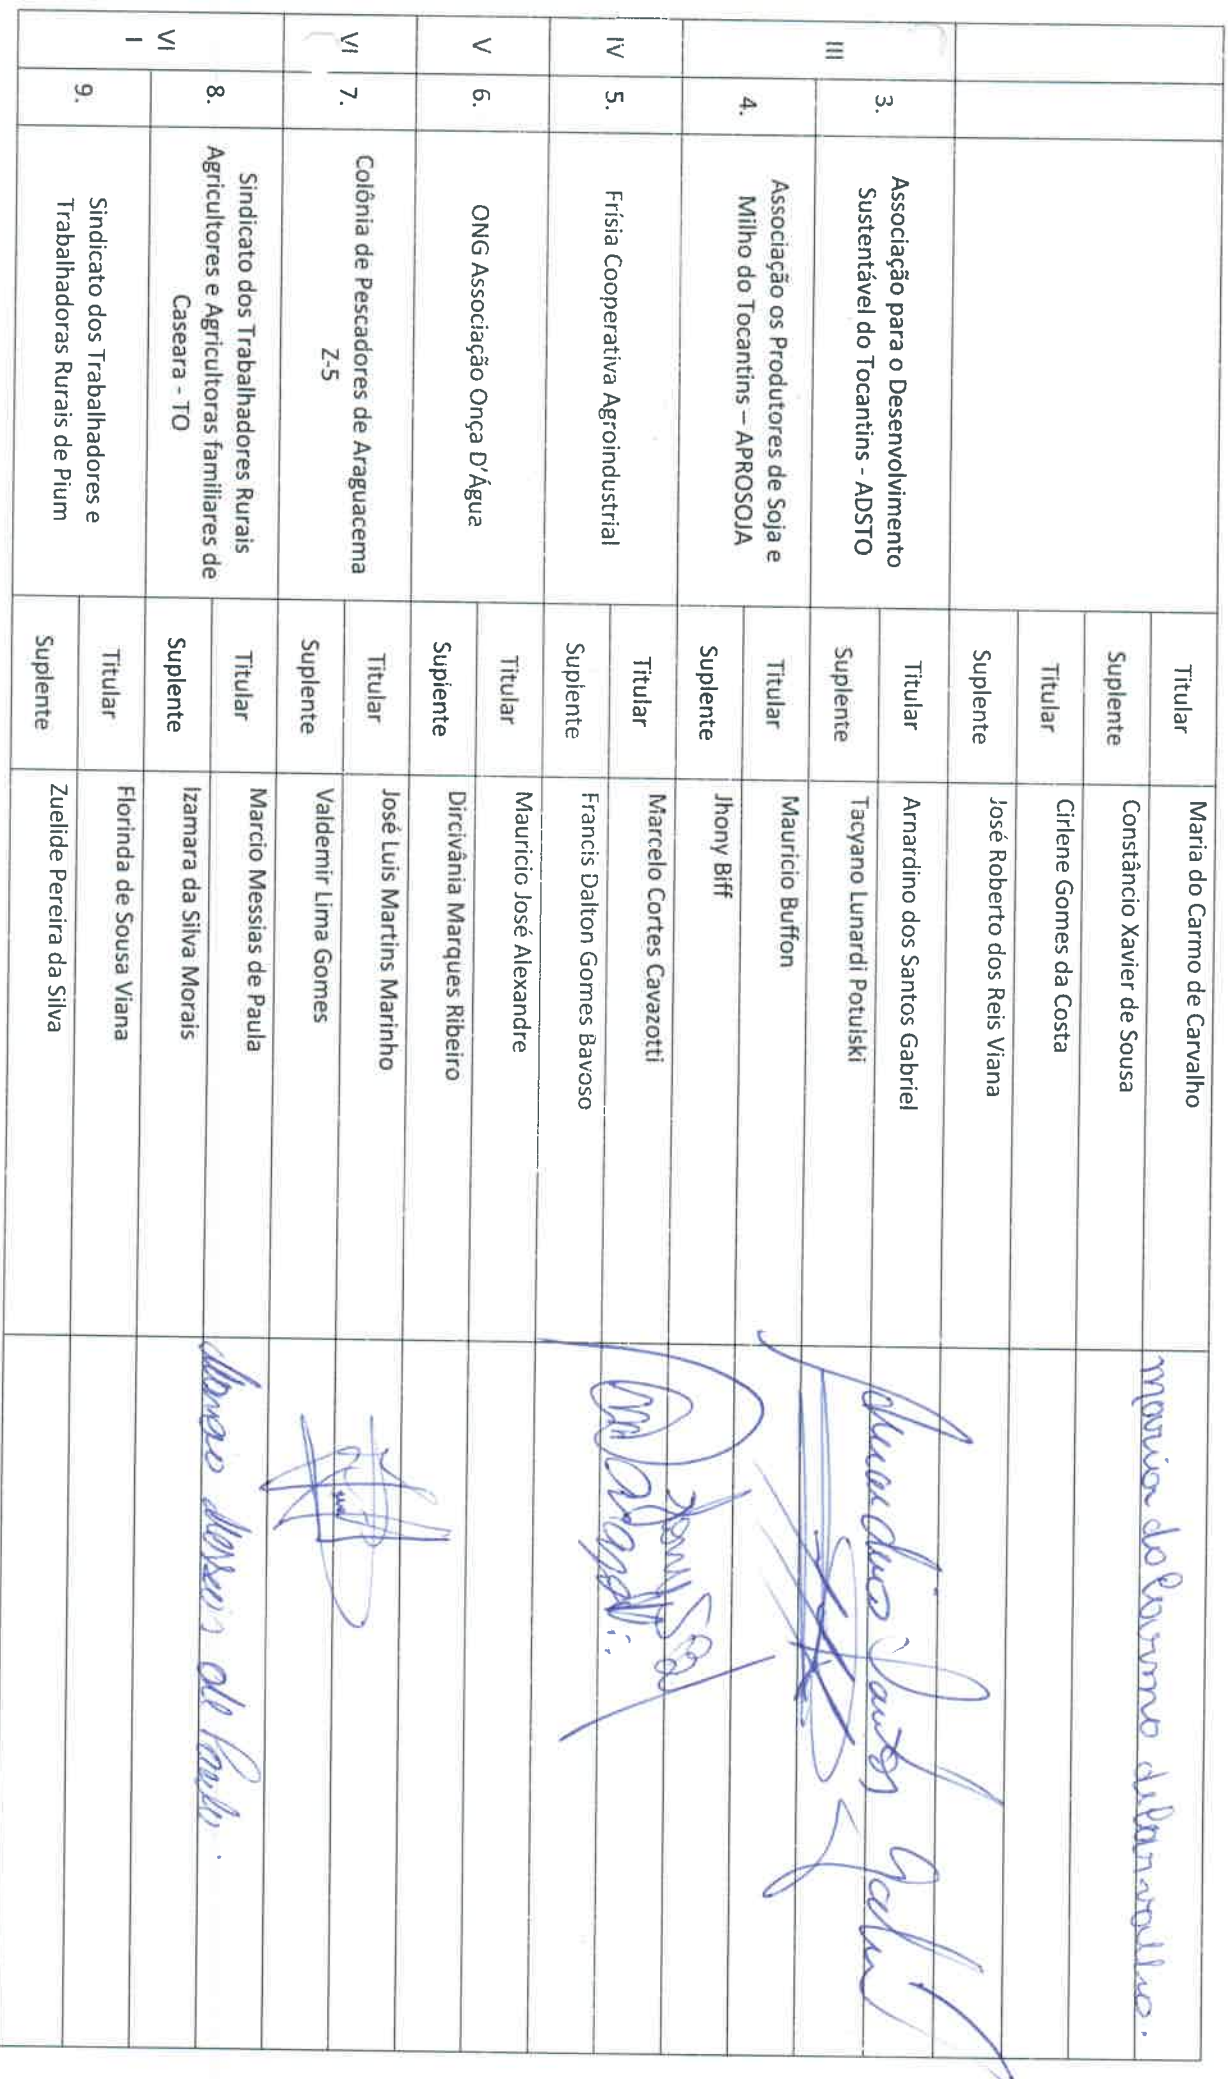 Titular Maria do Carmo de Carvalho Maria do Carmo de Carvalho.
Suplente Constâncio Xavier de Sousa
Titular Cirlene Gomes da Costa
Suplente José Roberto dos Reis Viana
III
3.
Associação para o Desenvolvimento
Sustentável do Tocantins - ADSTO
Titular Arnardino dos Santos Gabriel
Suplente Tacyano Lunardi Potulski
4.
Associação os Produtores de Soja e
Milho do Tocantins – APROSOJA
Titular Mauricio Buffon
Suplente Jhony Biff
IV
5.
Frísia Cooperativa Agroindustrial
Titular Marcelo Cortes Cavazotti
Suplente Francis Dalton Gomes Bavoso
V
6.
ONG Associação Onça D'Água
Titular Mauricio José Alexandre
Suplente Dircivânia Marques Ribeiro
VI
7.
Colônia de Pescadores de Araguacema
Z-5
Titular José Luis Martins Marinho
Suplente Valdemir Lima Gomes
VI
I
8.
Sindicato dos Trabalhadores Rurais
Agricultores e Agricultoras familiares de
Caseara - TO
Titular Marcio Messias de Paula Marcio Messias de Paula.
Suplente Izamara da Silva Morais
9.
Sindicato dos Trabalhadores e
Trabalhadoras Rurais de Pium
Titular Florinda de Sousa Viana
Suplente Zuelide Pereira da Silva